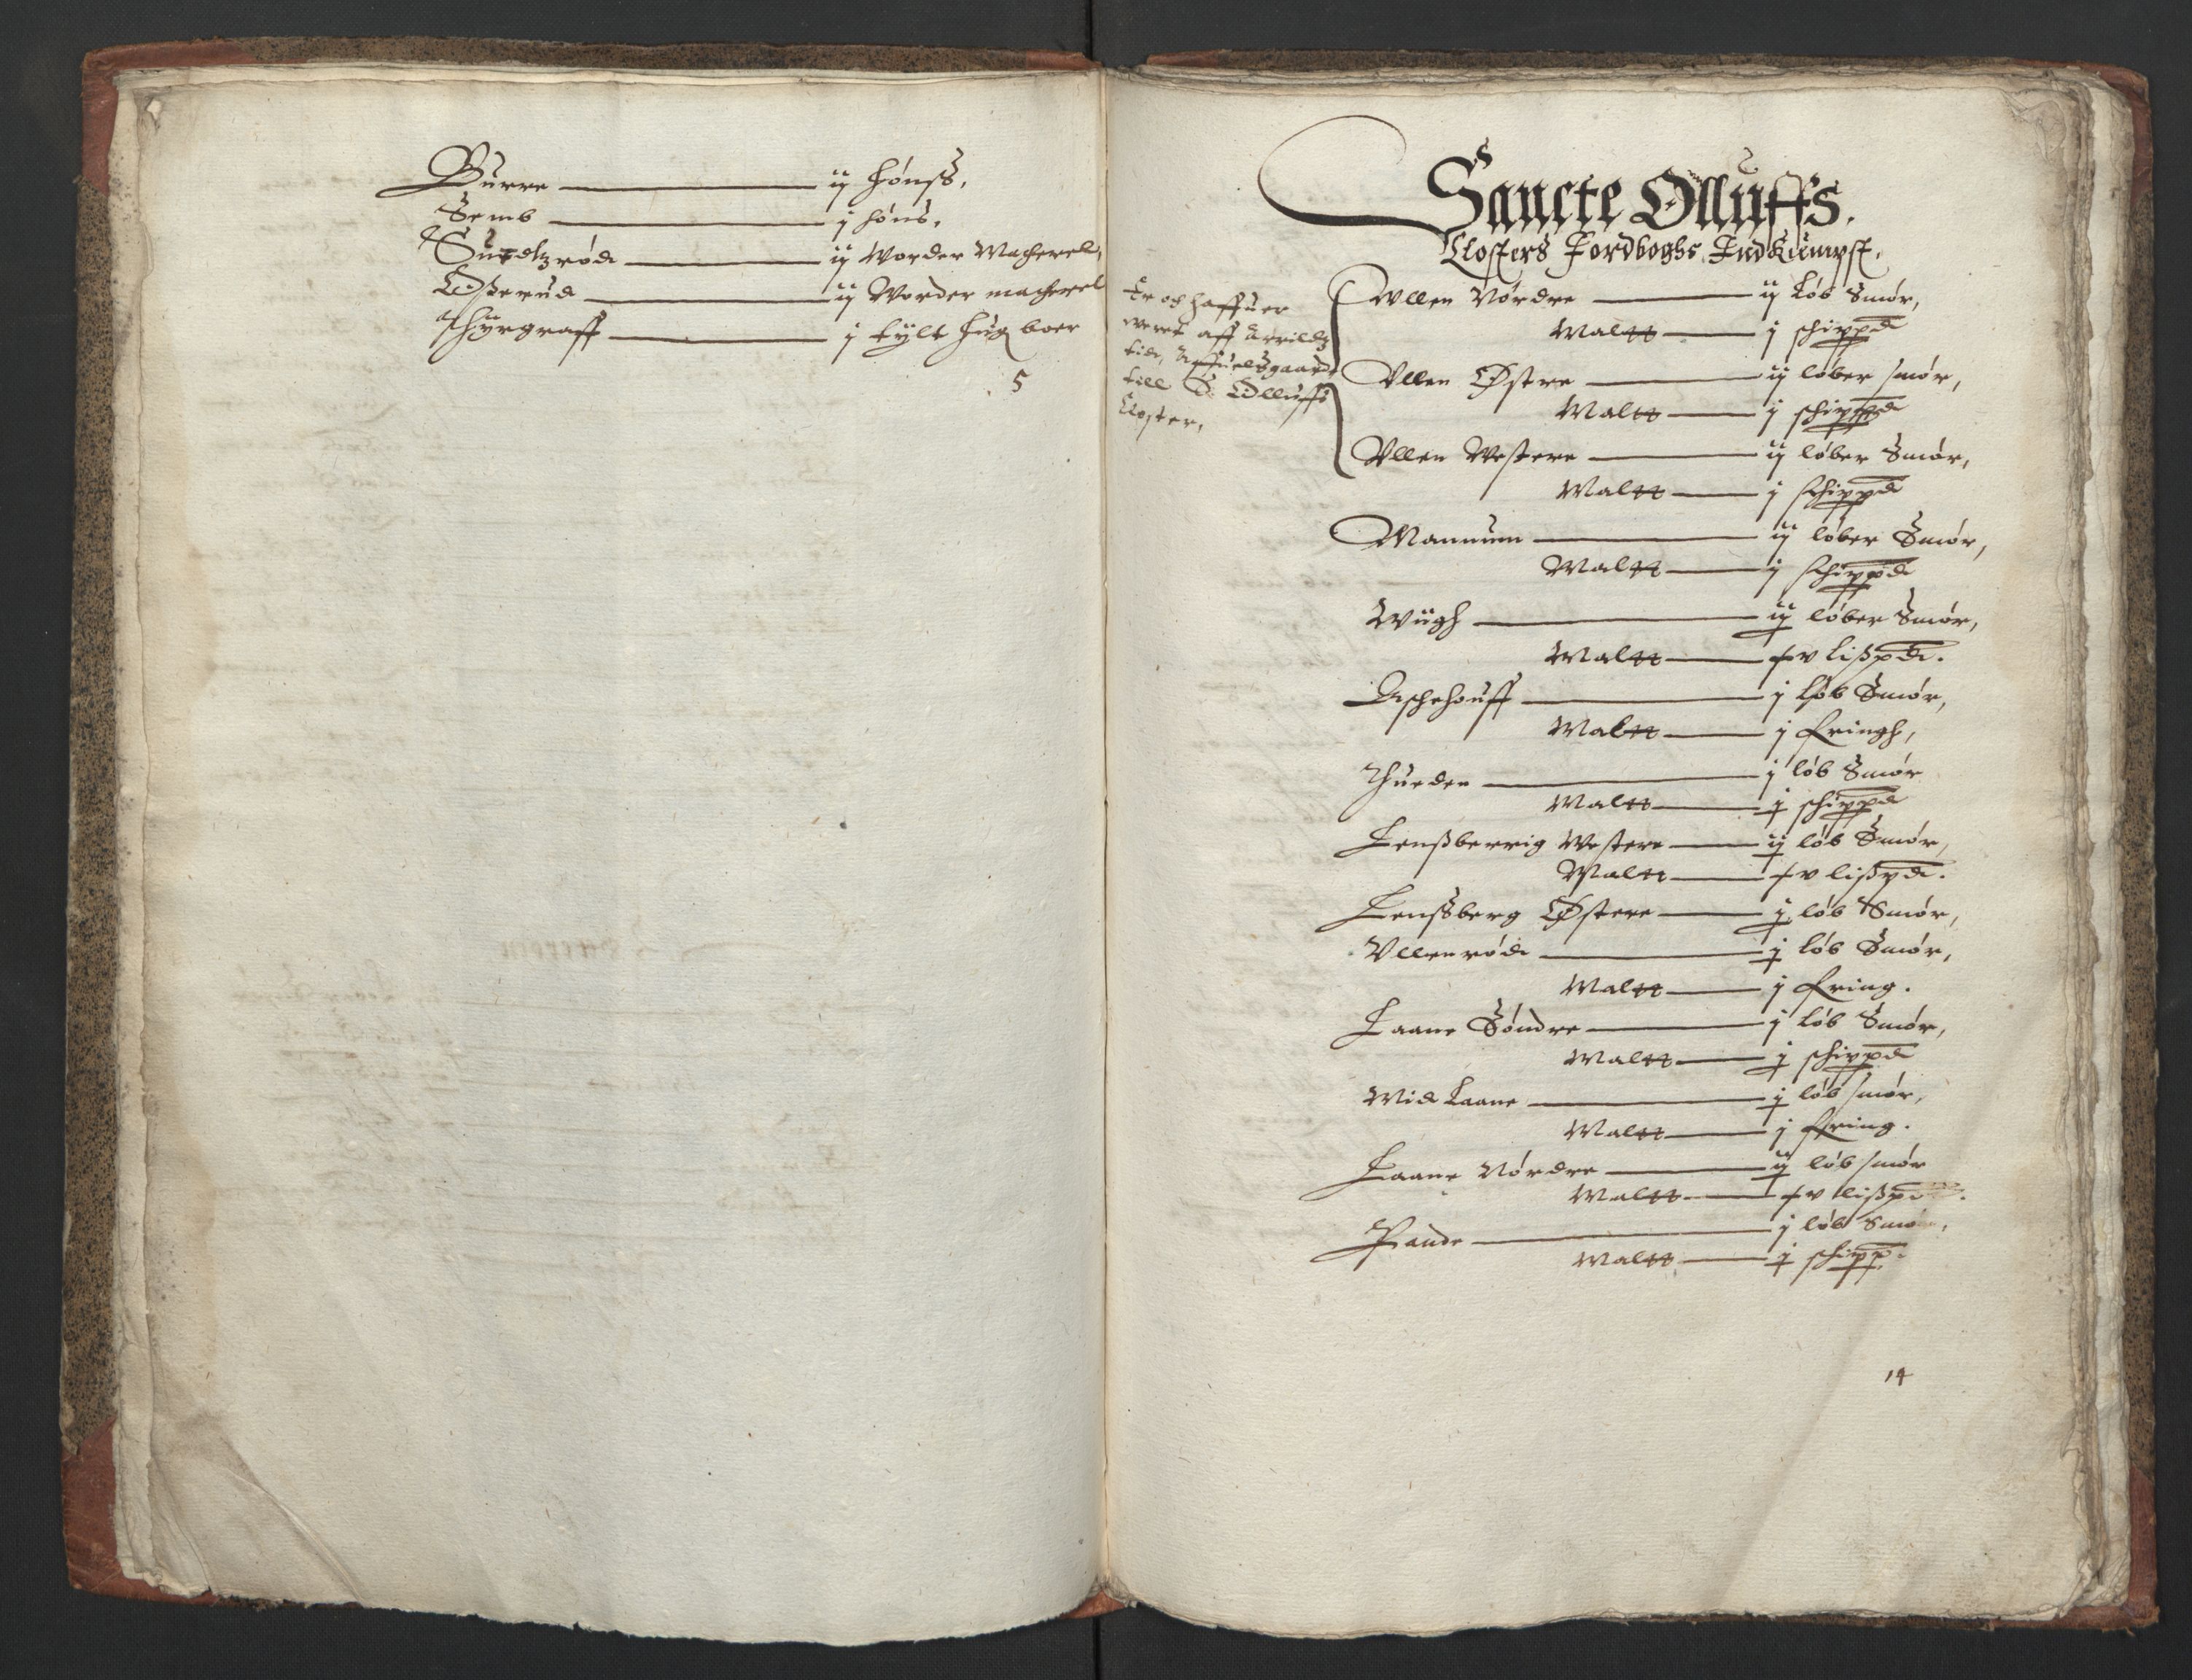 Burre — ij hønss,
Semb — j høns,
Suedtzrød — ij Worder Macherel,
Østerud — ij Worder macherel
Thyrgraff — j tylt hug boer
5
Sancte Olluffs.
Closters Jordboghs Indkumpst.
Er och haffuer
weret aff Arrildz
tid, Affuelsgaarde
till S. Olluffs
Closter,
Ullen Nørdre — ij Løb Smør,
Maltt — j schippd
Ullen Østre — ij løber smør,
Maltt — j schippd
Ullen Westere — ij løber Smør,
Maltt — j schippd
Mannum — ij løber Smør,
Maltt — j schippd
Wiigh — ij løber Smør,
Maltt — xv lißpd.
Aschehouff — j løb Smør,
Maltt — j fringh,
Thueden — j løb Smør
Maltt — j schippd
Lenßberrig Westere — ij løb Smør,
Maltt — xv lißpd.
Lenssberg Østere — j løb Smør,
Ullenrød — j løb Smør,
Maltt — j fring.
Laane Søndre — j løb Smør,
Maltt — j schippd
Mid Laane — j løb smør,
Maltt — j fring.
Laane Nørdre — ij løb smør
Maltt — xv lißpd.
Rande — j løb Smør,
Maltt — j schipp.
14